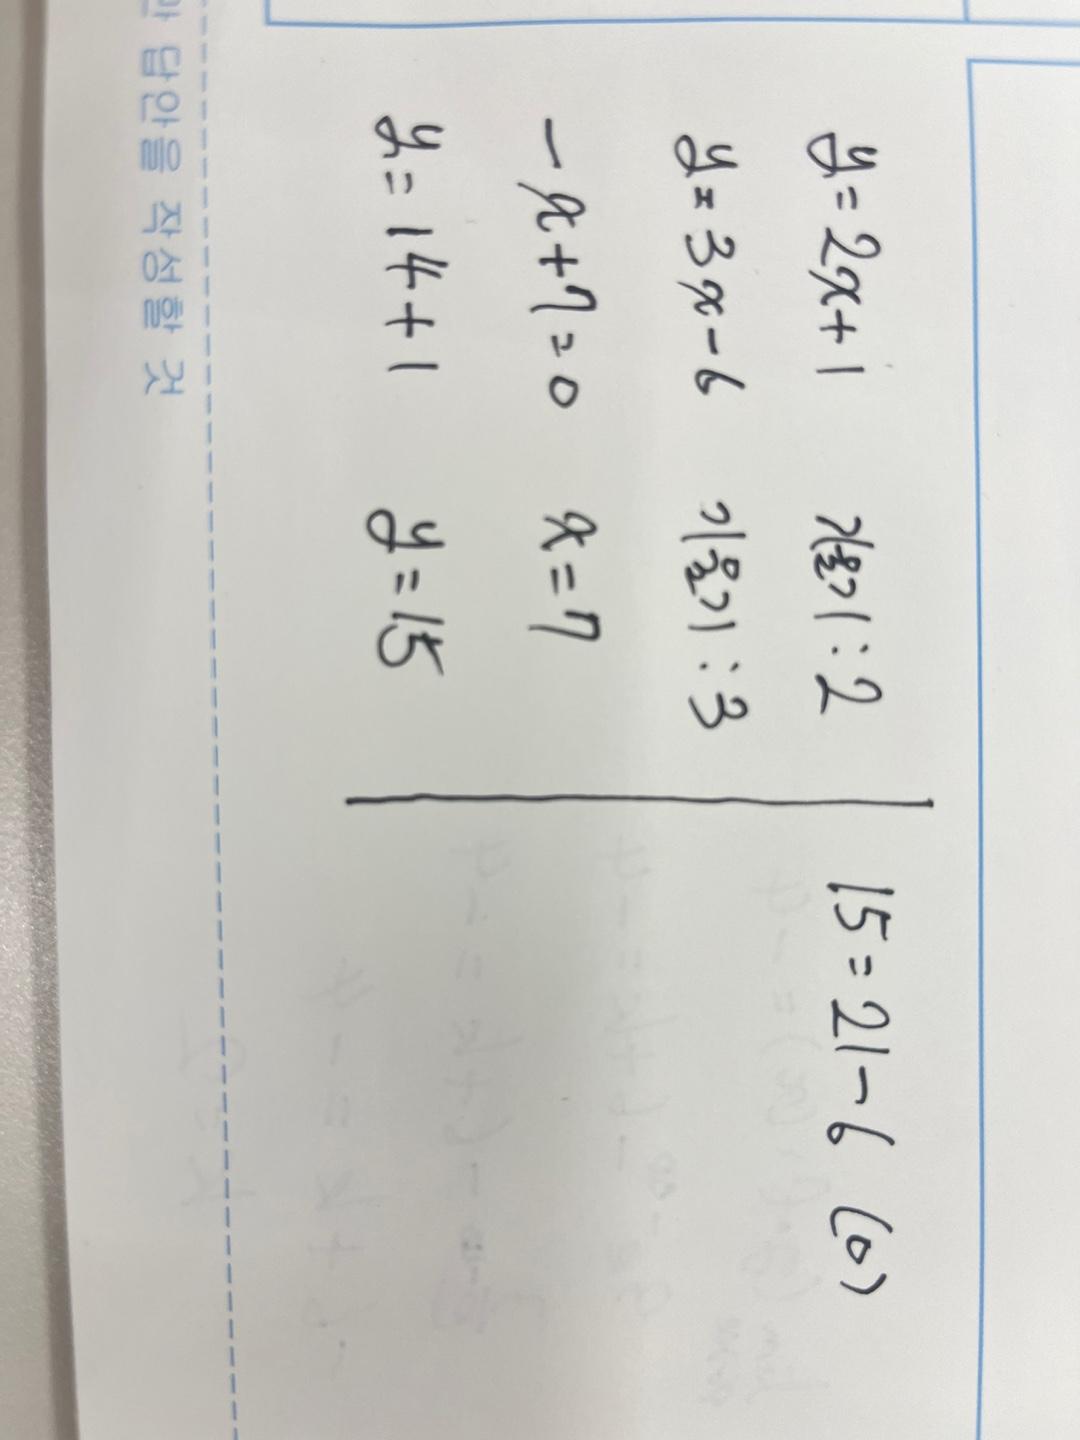 y=2x+1 기울기:2
y=3x-6 기울기:3
-x+7=0 x=7
y=14+1 y=15
15=21-6 (o)
답안을 작성할 것